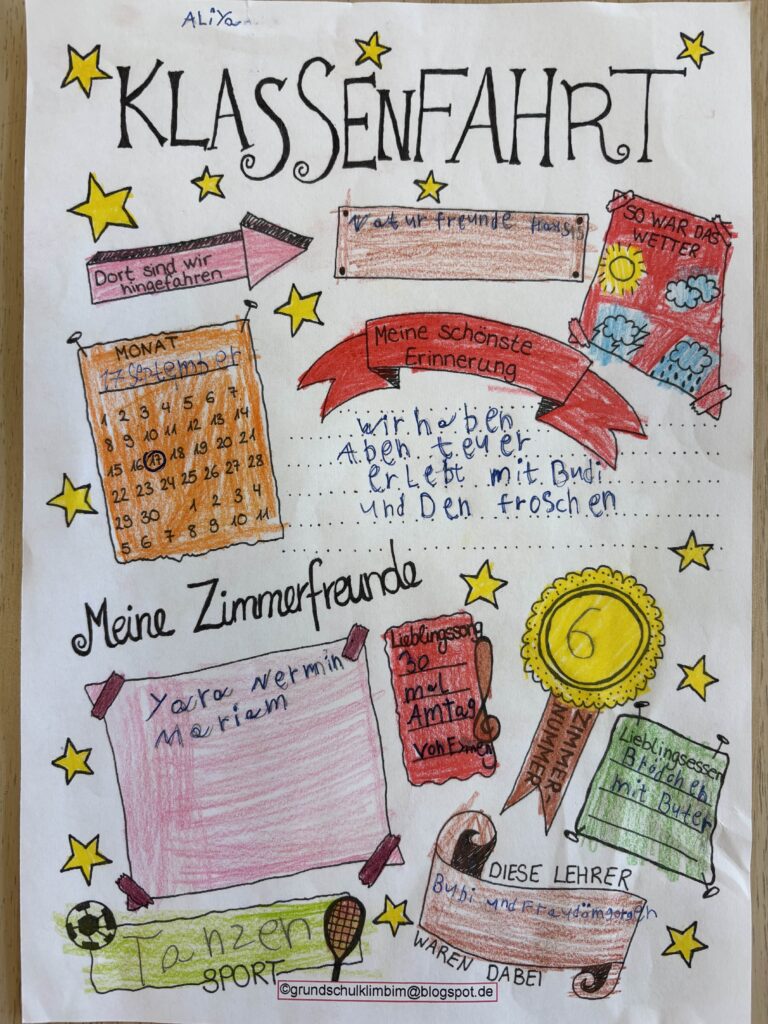 ALiYa
KLASSENFAHRT
Dort sind wir
hingefahren
Naturfreunde haus
SO WAR DAS
WETTER
MONAT
17 September
1 2 3 4 5 6 7
8 9 10 11 12 13 14
15 16 17 18 19 20 21
22 23 24 25 26 27 28
29 30 1 2 3 4
5 6 7 8 9 10 11
Meine schönste
Erinnerung
wir haben
Aben teuer
erLebt mit Budi
und Den froschen
Meine Zimmerfreunde
Yara Nermin
Mariam
Lieblingssong
30
mal
Amtag
von
6
ZIMMER-
NUMMER
Lieblingsessen
Brödchen
mit Buter
DIESE LEHRER
und Frau
WAREN DABEI
Tanzen
SPORT
©grundschulklimbim@blogspot.de